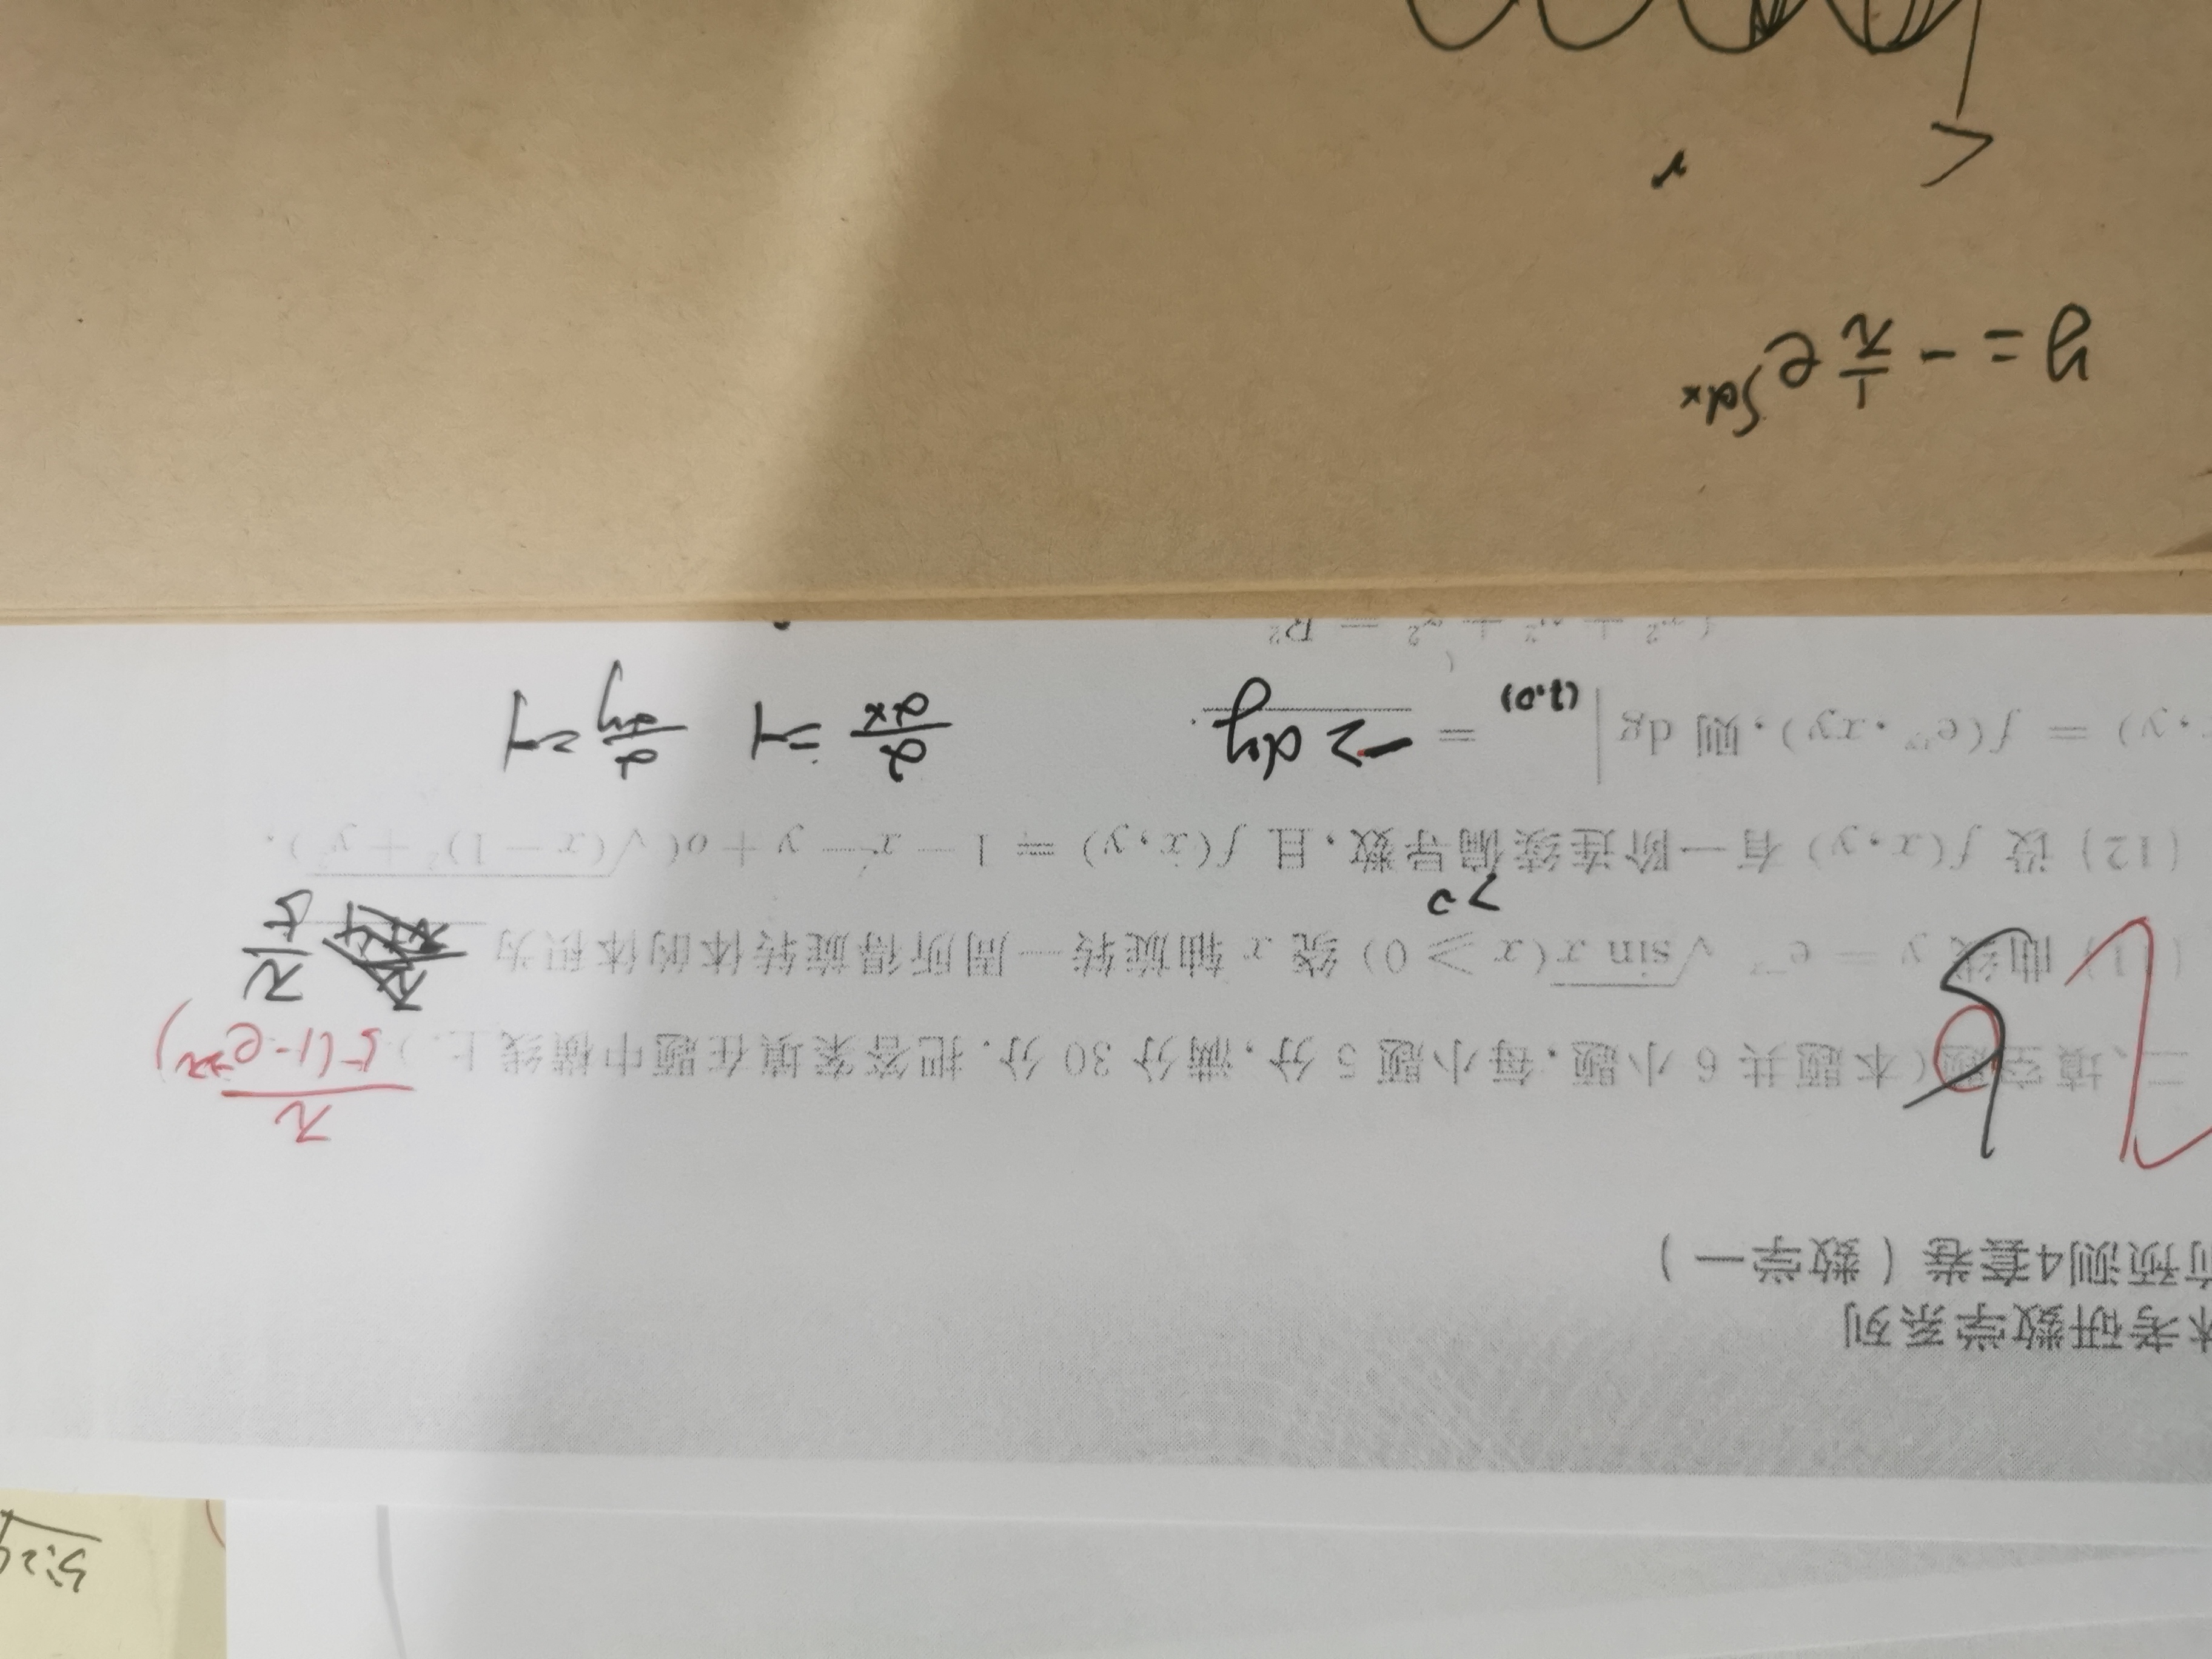 考研数学系列
预测4套卷(数学一)
二、填空题(本题共6小题,每小题5分,满分30分.把答案填在题中横线上.)
π/5(1-e^-2π)
曲线 y = e^-x √sin x (x ⩾ 0) 绕 x 轴旋转一周所得旋转体的体积为 π/5
>0
(12) 设 f(x,y) 有一阶连续偏导数,且 f(x,y) = 1 - x - y + o(√(x-1)²+y²).
,y) = f(e^xy, xy), 则 dg|(1,0) = -2dy. ∂/∂x = -1 ∂/∂y = -1
x² + y² + z² = R²
y = - 1/π e^∫dx